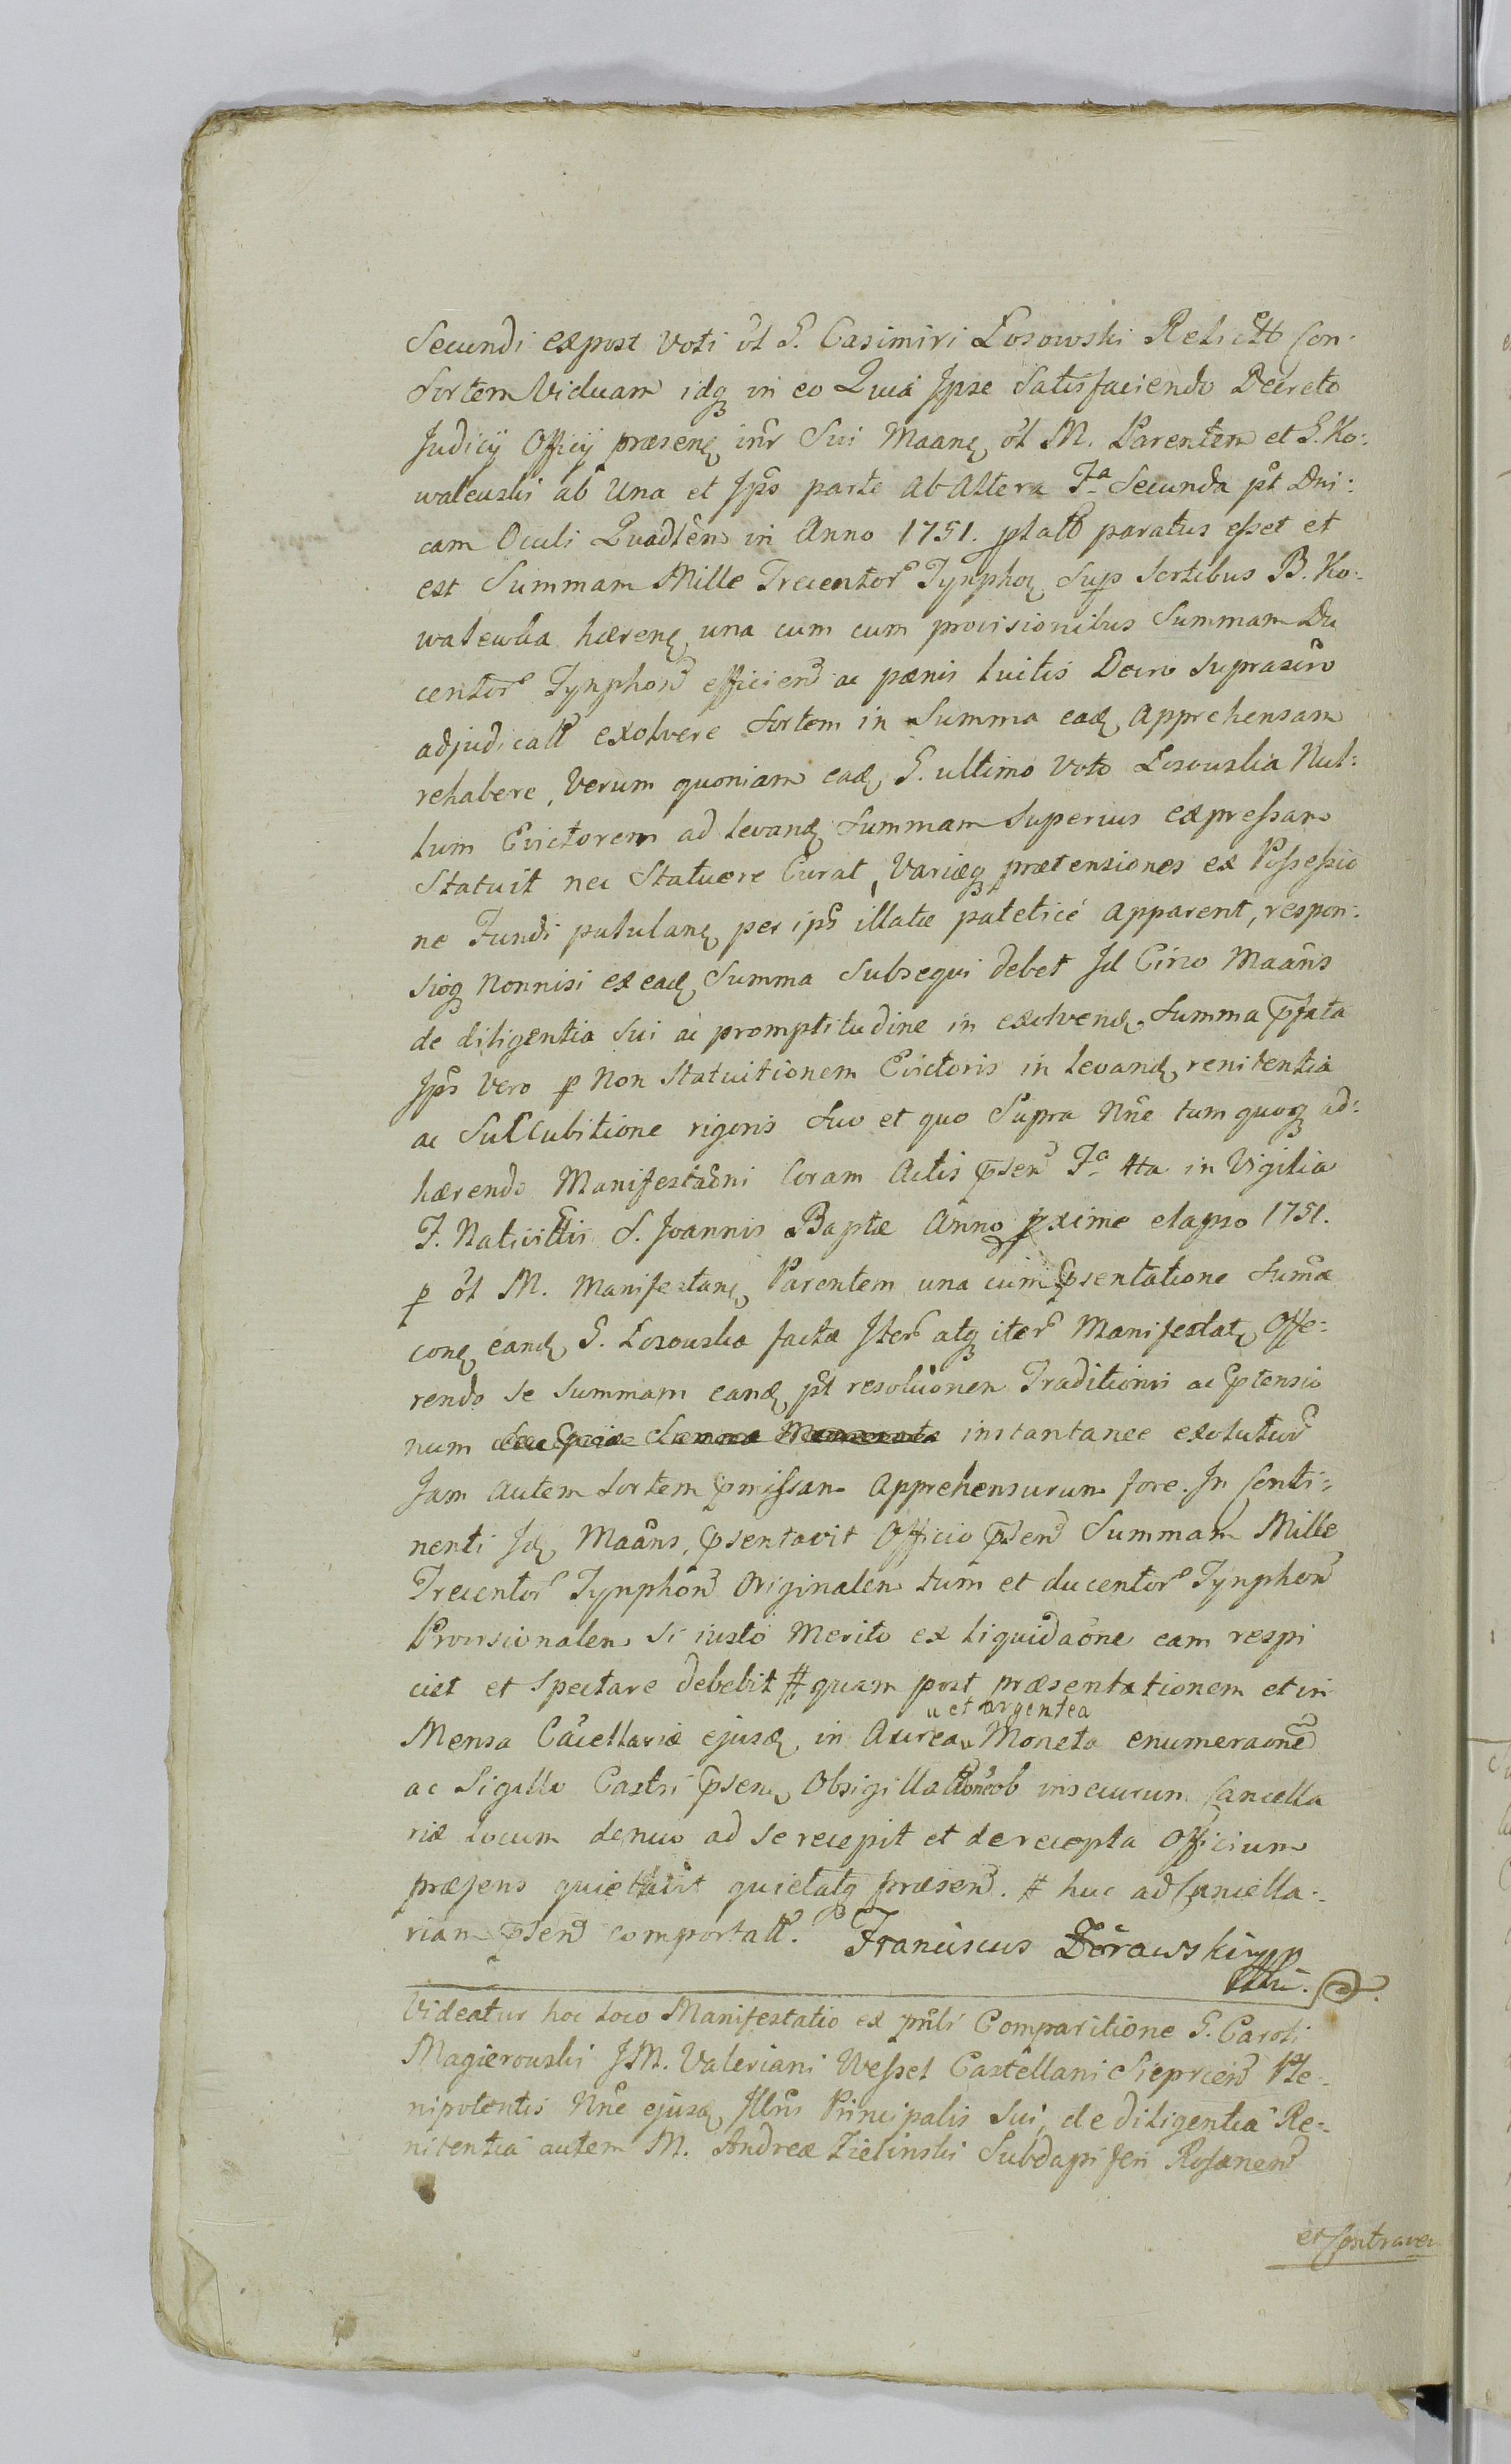 Secundi expost Voti ol G. Casimiri Losowski Relictã Con-
sortem Viduam idq; in eo Quia Ipse Satisfaciendo Decreto
Judicÿ Officÿ præsenę intr Sui Maanę ol M. Parentem et G. Ko:
walewski ab Una et Ips parte Ab Altera Fa Secunda pt Dni:
cam Oculi Quadlem in Anno 1751. plato paratus esset et
est Summam Mille Trecentor Tynphoę Sup Sortibus B. Ko:
walewka hærenę una cum cum provisionibus Summam Du
centor Tynphon efficien ac pænis luitis Decro Suprascro
adjudicatt exolvere Sortem in Summa eadę Apprehensam
rehabere, Verum quoniam eadę G. ultimo Voto Losowska Nul:
lum Evictorem ad levandę Summam Superius expressam
Statuit nec Statuere Curat, Variæq; prætensiones ex Possessio
ne Fundi patulanę per ips illatæ pateticè apparent, respon:
sioq; Nonnisi ex eadę Summa Subsequi debet Id Circo Maans
de diligentia Sui ac promptitudine in exolvendę Summa pfata
Ips Vero p Non Statuitionem Evictoris in levandę renitentia
ac Succubitione rigoris Suo et quo Supra Nne tum quoq; ad:
hærendo Manifestaoni Coram Actis psen Fa 4ta in Vigilia
F. Nativittis S. Joannis Baptæ Anno pxime elapso 1751.
p ol M. Manifestanę Parentem una cum psentatione Sumæ
conę eandę G. Losowska factæ Iter atq; iter Manifestatę Offe:
rendo se Summam eandę pt resoluonem Traditionis ac ptensio
num instantanee exoluturũ
Jam autem Sortem pmissam Apprehensurum fore. In Conti:
nenti Idę Maans, psentavit Officio psen Summam Mille
Trecentor Tynphon Originalem tum et ducentor Tynphon
Provisionalem si iusto Merito ex liquidaone eam respi
ciet et Spectare debebit # quam post præsentationem et in
Mensa Cacellariæ ejusdę in Aurea et argentea Moneta enumeraone
ac Sigillo Castri psenę Obsigillaone ob insecurum Cancella
riæ locum denuo ad se recepit et de recepta Officium
præsens quiettavit quietatq; præsen. # huc ad Cancella:
riam psen comportatt. Franciscus Zorawski mpp

Videatur hoc loco Manifestatio ex pnli Comparitione G. Caroli
Magierowski JM. Valeriani Wessel Castellani Sieprcen Ple:
nipotentis Nne ejusdę Illris Principalis Sui, de diligentia Re:
nitentia autem M. Andreæ Zielinski Subdapiferi Rosanen
et Contraven